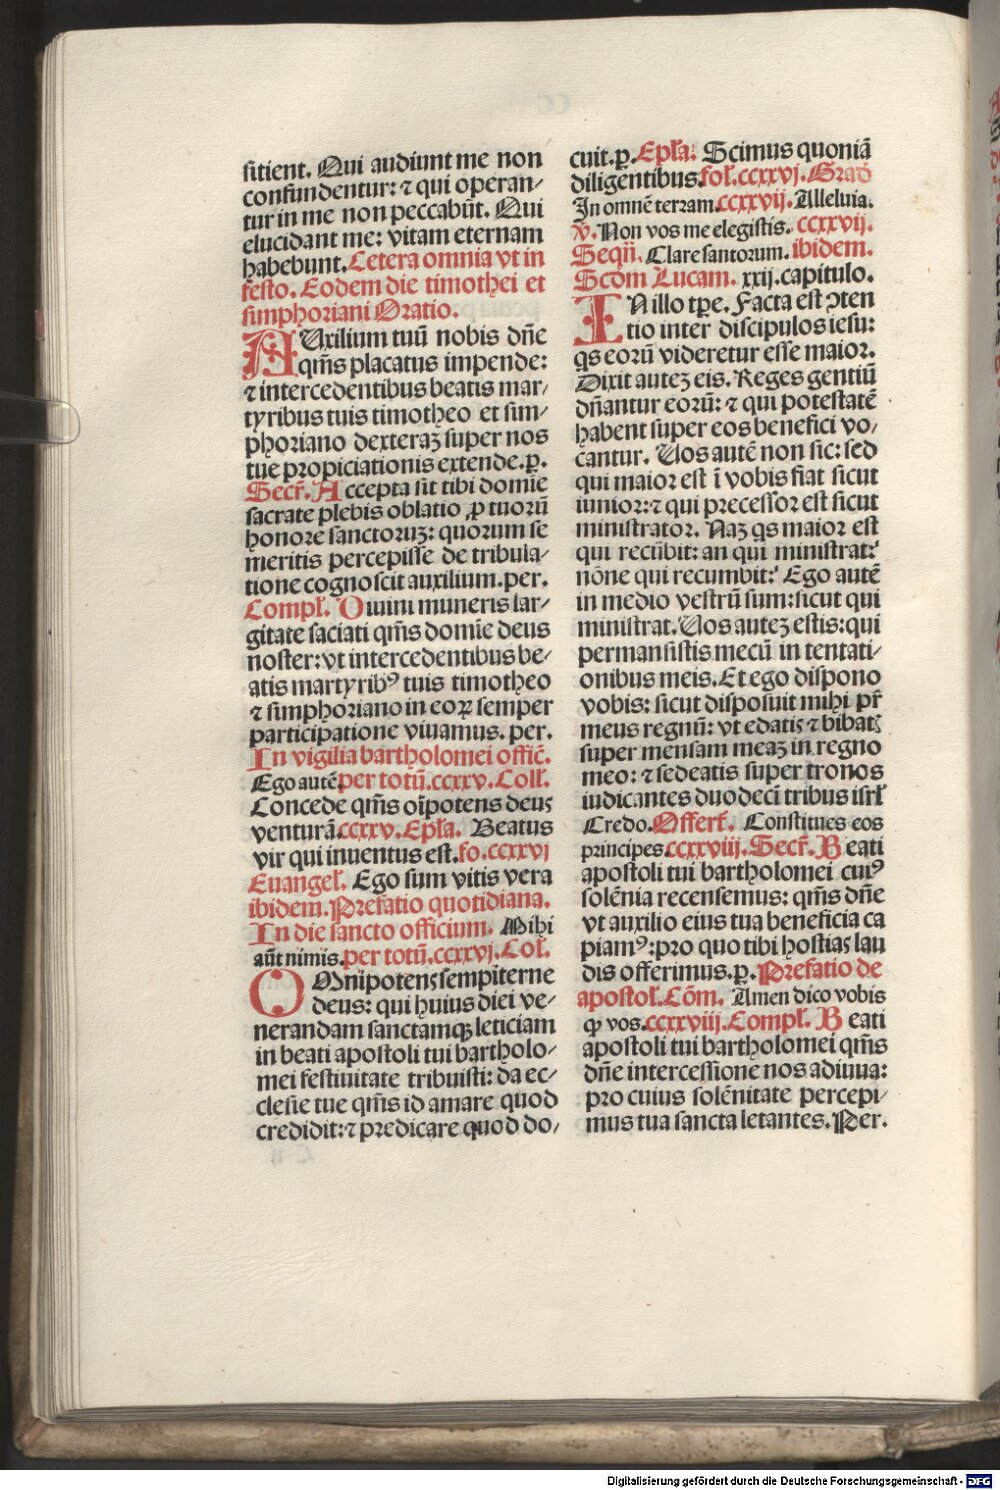 sitient. Qui audiunt me non
confundentur: ⁊ qui operan⸗
tur in me non peccabūt. Qui
elucidant me: vitam eternam
habebunt. Cetera omnia vt in
festo. Eodem die timothei et
simphoriani Oratio.
AUxilium tuū nobis dn̄e
qm̄s placatus impende:
⁊ intercedentibus beatis mar⸗
tyribus tuis timotheo et sim⸗
phoriano dexteraꝫ super nos
tue propiciationis extende. ꝑ.
Secr̄. Accepta sit tibi domīe
sacrate plebis oblatio ꝓ tuorū
honore sanctoruꝫ: quorum se
meritis percepisse de tribula⸗
tione cognoscit auxilium. per.
Compl̄. Diuini muneris lar⸗
gitate saciati qm̄s domīe deus
noster: vt intercedentibus be⸗
atis martyribꝰ tuis timotheo
⁊ simphoriano in eoꝝ semper
participatione viuamus. per.
In vigilia bartholomei offic̄.
Ego autē per totū. ccxxv. Coll̄.
Concede qm̄s oīpotens deus
venturā. ccxxv. Epl̄a. Beatus
vir qui inuentus est. fo. ccxxvj
Euangel̄. Ego sum vitis vera
ibidem. Prefatio quotidiana.
In die sancto officium. Mihi
aūt nimis. per totū. ccxxvj. Col̄.
OMnipotens sempiterne
deus: qui huius diei ve⸗
nerandam sanctamqꝫ leticiam
in beati apostoli tui bartholo⸗
mei festiuitate tribuisti: da ec⸗
clesie tue qm̄s id amare quod
credidit: ⁊ predicare quod do⸗
cuit. ꝑ. Epl̄a. Scimus quoniā
diligentibus. fol̄. ccxxvj. Grad
In omnē terram. ccxxvij. Alleluia.
℣. Non vos me elegistis. ccxxvij.
Seqn̄. Clare santorum. ibidem.
Scd̄m Lucam. xxij. capitulo.
IN illo tp̄e. Facta est ↄten
tio inter discipulos iesu:
qs eorū videretur esse maior.
Dixit auteꝫ eis. Reges gentiū
dn̄antur eorū: ⁊ qui potestatē
habent super eos benefici vo⸗
cantur. Uos autē non sic: sed
qui maior est ī vobis fiat sicut
iunior: ⁊ qui precessor est sicut
ministrator. Naꝫ qs maior est
qui recūbit: an qui ministrat:
nōne qui recumbit: Ego autē
in medio vestrū sum: sicut qui
ministrat. Uos auteꝫ estis: qui
permansistis mecū in tentati⸗
onibus meis. Et ego dispono
vobis: sicut disposuit mihi pr̄
meus regnū: vt edatis ⁊ bibatꝭ
super mensam meaꝫ in regno
meo: ⁊ sedeatis super tronos
iudicantes duodecī tribus isrl̄
Credo. Offert̄. Constitues eos
principes. ccxxviij. Secr̄. Beati
apostoli tui bartholomei cuiꝰ
solēnia recensemus: qm̄s dn̄e
vt auxilio eius tua beneficia ca
piamꝰ: pro quo tibi hostias lau
dis offerimus. ꝑ. Prefatio de
apostol̄. Cōm. Amen dico vobis
ꝙ vos. ccxxviij. Compl̄. Beati
apostoli tui bartholomei qm̄s
dn̄e intercessione nos adiuua:
pro cuius solēnitate percepi⸗
mus tua sancta letantes. Per.
Digitalisierung gefördert durch die Deutsche Forschungsgemeinschaft - DFG